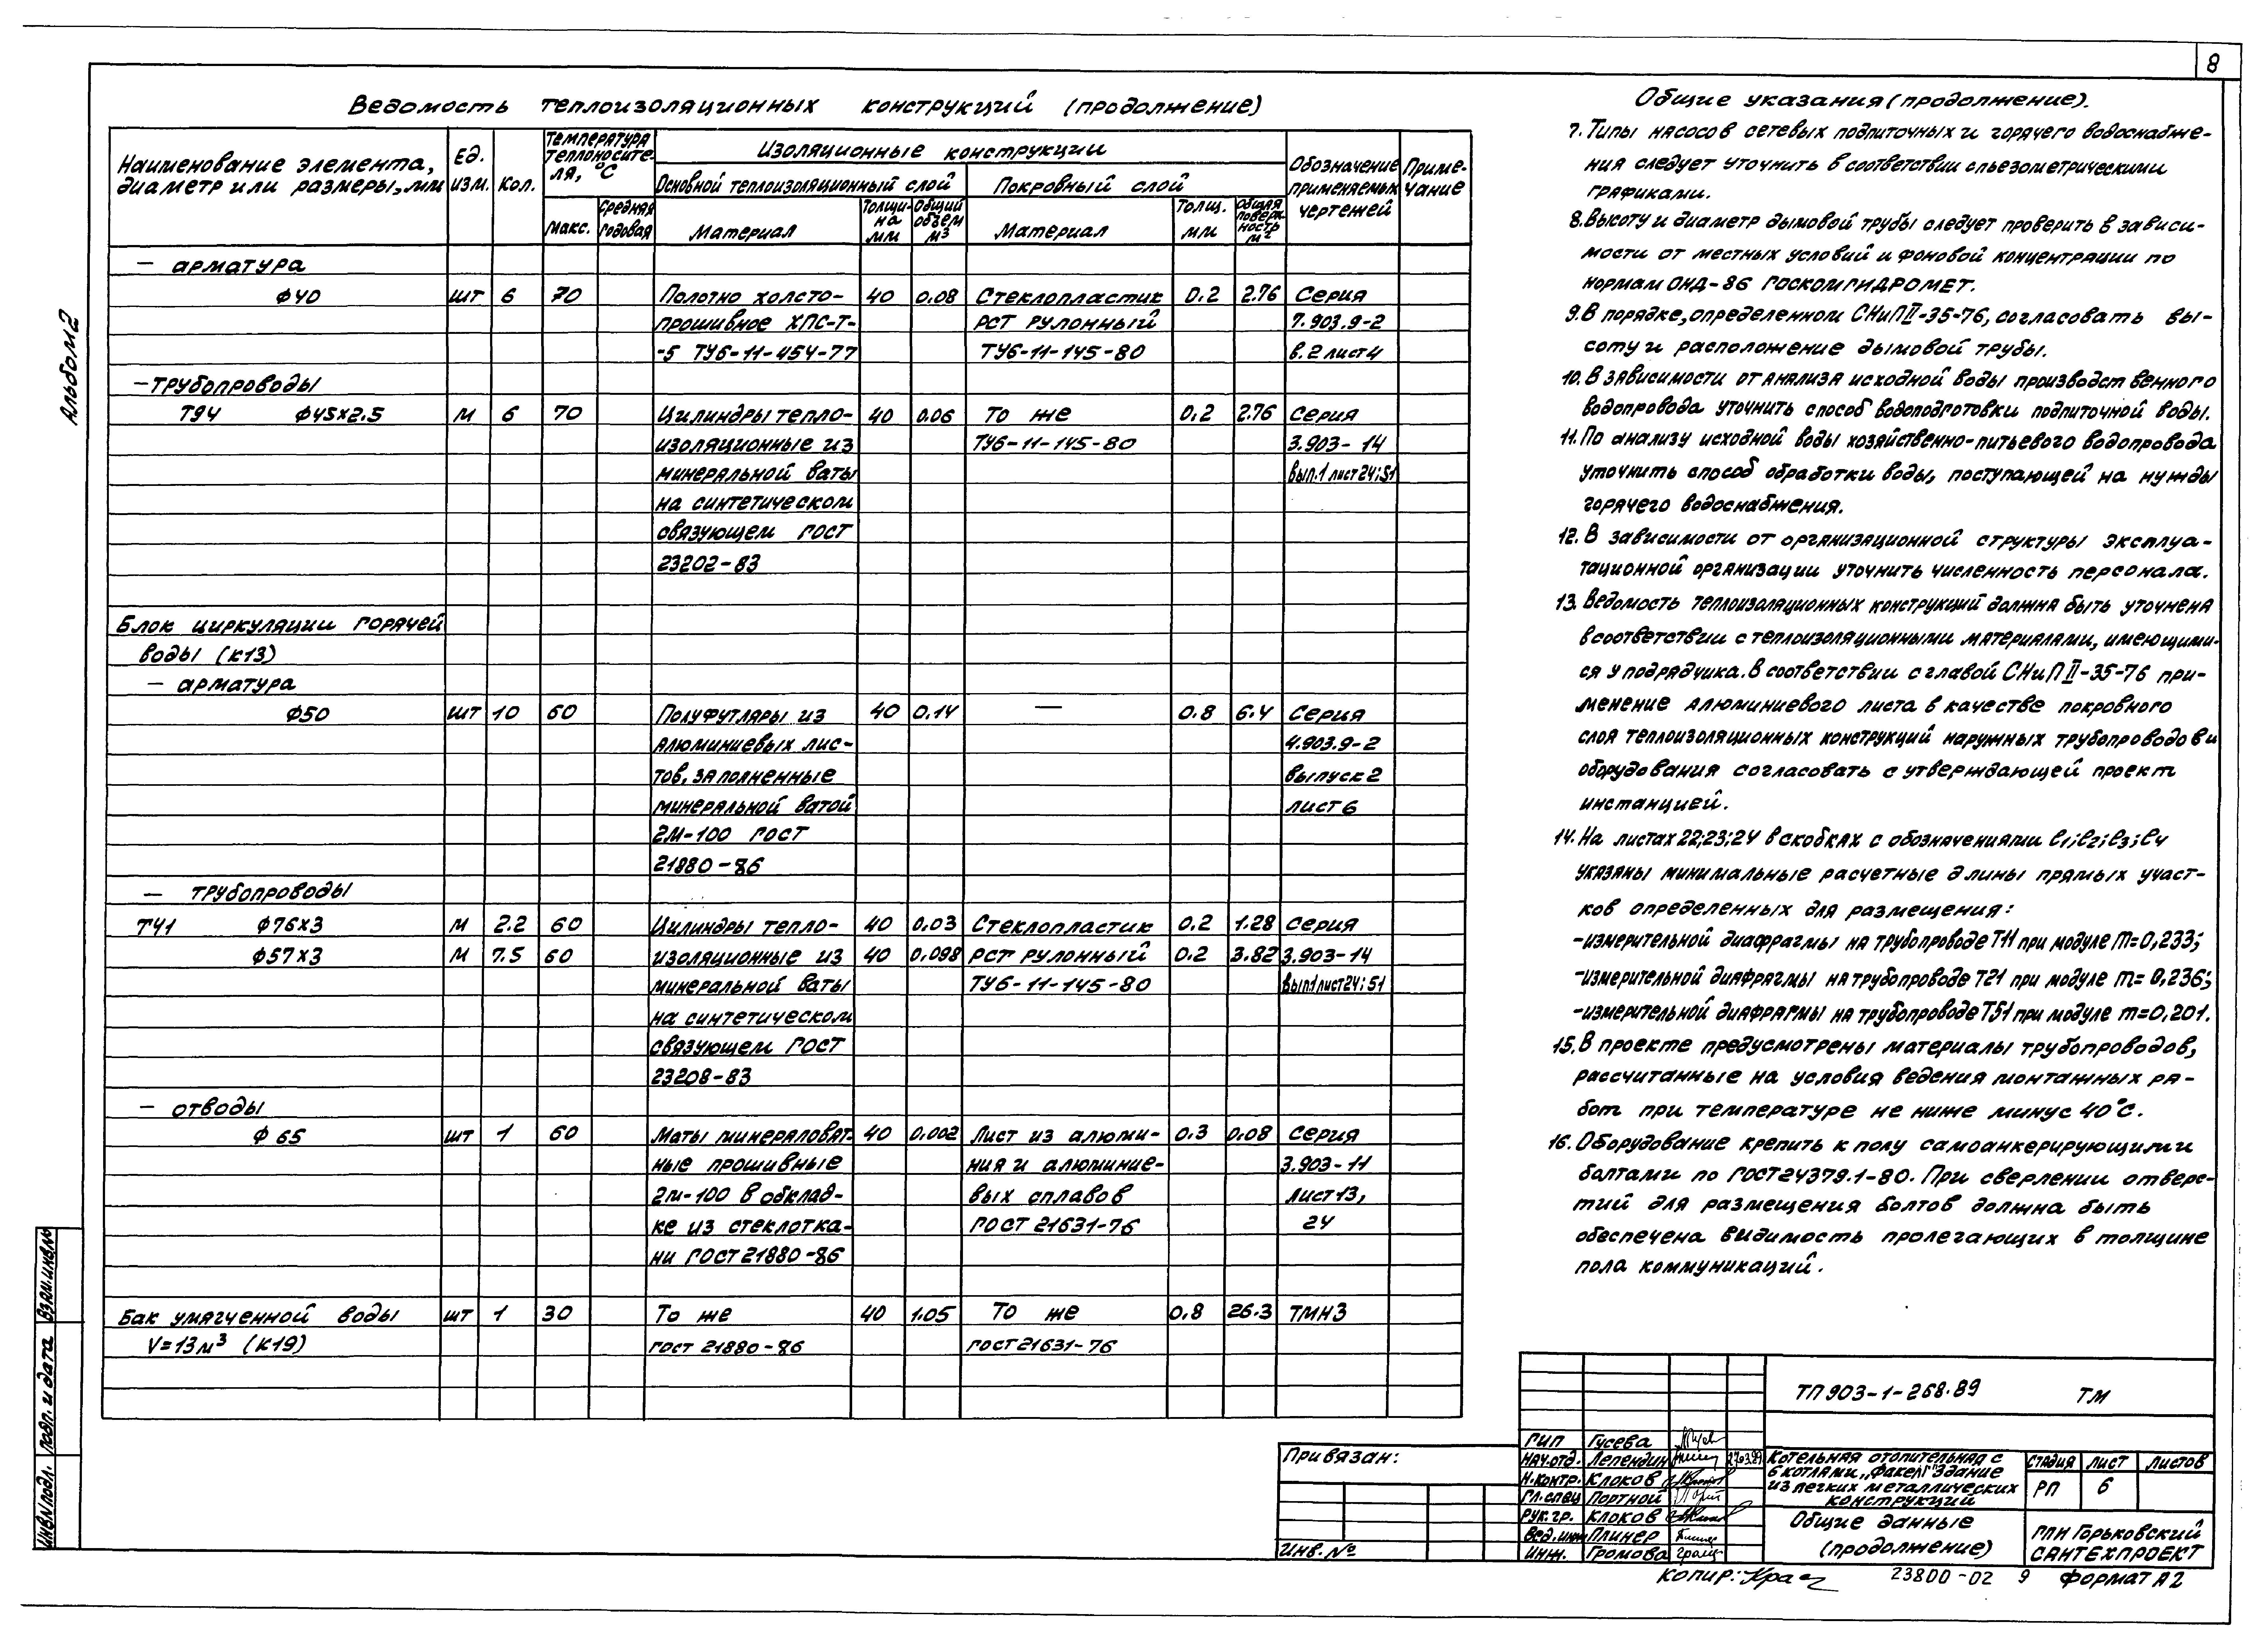 8
Альбом 2
Ведомость теплоизоляционных конструкций (продолжение)
Наименование элемента, диаметр или размеры, мм
Ед. изм.
Кол.
Температура теплоносителя, °С
Макс.
Средняя годовая
Изоляционные конструкции
Основной теплоизоляционный слой
Покровный слой
Материал
Толщина мм
Общий объем м³
Материал
Толщ. мм
Общая поверхность м²
Обозначение применяемых чертежей
Примечание
— арматура
ф40 шт 6 70 Полотно холсто- 40 0.08 Стеклопластик 0.2 2.76 Серия
прошивное ХПС-Т- РСТ рулонный 7.903.9-2
-5 ТУ6-11-454-77 ТУ6-11-145-80 в.2 лист 4
— трубопроводы
Т94 ф45х2.5 м 6 70 Цилиндры тепло- 40 0.06 То же 0.2 2.76 Серия
изоляционные из ТУ6-11-145-80 3.903-14
минеральной ваты вып.1 лист 24; 51
на синтетическом
связующем ГОСТ
23202-83
Блок циркуляции горячей
воды (К13)
— арматура
ф50 шт 10 60 Полуфутляры из 40 0.14 — 0.8 6.4 Серия
алюминиевых лис- 4.903.9-2
тов, заполненные выпуск 2
минеральной ватой лист 6
2М-100 ГОСТ
21880-86
— трубопроводы
Т41 ф76х3 м 2.2 60 Цилиндры тепло- 40 0.03 Стеклопластик 0.2 1.28 Серия
ф57х3 м 7.5 60 изоляционные из 40 0.098 РСТ рулонный 0.2 3.82 3.903-14
минеральной ваты ТУ6-11-145-80 вып.1 лист 24; 51
на синтетическом
связующем ГОСТ
23208-83
— отводы
ф 65 шт 1 60 Маты минераловат- 40 0.002 Лист из алюми- 0.3 0.08 Серия
ные прошивные ния и алюминие- 3.903-11
2М-100 в обклад- вых сплавов лист 13,
ке из стеклотка- ГОСТ 21631-76 24
ни ГОСТ 21880-86
Бак умягченной воды шт 1 30 То же 40 1.05 То же 0.8 26.3 ТМН3
V=13м³ (К19) ГОСТ 21880-86 ГОСТ 21631-76
Общие указания (продолжение).
7. Типы насосов сетевых подпиточных и горячего водоснабже-
ния следует уточнить в соответствии с пьезометрическими
графиками.
8. Высоту и диаметр дымовой трубы следует проверить в зависи-
мости от местных условий и фоновой концентрации по
нормам ОНД-86 ГОСКОМГИДРОМЕТ.
9. В порядке, определенном СНиП II-35-76, согласовать вы-
соту и расположение дымовой трубы.
10. В зависимости от анализа исходной воды производственного
водопровода уточнить способ водоподготовки подпиточной воды.
11. По анализу исходной воды хозяйственно-питьевого водопровода
уточнить способ обработки воды, поступающей на нужды
горячего водоснабжения.
12. В зависимости от организационной структуры эксплуа-
тационной организации уточнить численность персонала.
13. Ведомость теплоизоляционных конструкций должна быть уточнена
в соответствии с теплоизоляционными материалами, имеющими-
ся у подрядчика. В соответствии с главой СНиП II-35-76 при-
менение алюминиевого листа в качестве покровного
слоя теплоизоляционных конструкций наружных трубопроводов и
оборудования согласовать с утверждающей проект
инстанцией.
14. На листах 22; 23; 24 в скобках с обозначениями ℓ1; ℓ2; ℓ3; ℓ4
указаны минимальные расчетные длины прямых участ-
ков определенных для размещения:
-измерительной диафрагмы на трубопроводе Т11 при модуле m=0,233;
-измерительной диафрагмы на трубопроводе Т21 при модуле m=0,236;
-измерительной диафрагмы на трубопроводе Т51 при модуле m=0,201.
15. В проекте предусмотрены материалы трубопроводов,
рассчитанные на условия ведения монтажных ра-
бот при температуре не ниже минус 40°С.
16. Оборудование крепить к полу самоанкерирующими
болтами по ГОСТ 24379.1-80. При сверлении отверс-
тий для размещения болтов должна быть
обеспечена видимость пролегающих в толщине
пола коммуникаций.
Инв.№подл. Подп. и дата Взам.инв.№
Привязан:
Инв. №
ТП 903-1-268.89 ТМ
ГИП Гусева
Нач.отд. Лепендин 27.03.89
Н.контр. Клоков
Гл.спец Портной
Рук.гр. Клоков
Вед.инж Плинер
Инж. Громова
Котельная отопительная с
6 котлами „Факел". Здание
из легких металлических
конструкций
Стадия Лист Листов
РП 6
Общие данные
(продолжение)
ГПИ Горьковский
САНТЕХПРОЕКТ
Копир: 23800-02 9 Формат А2